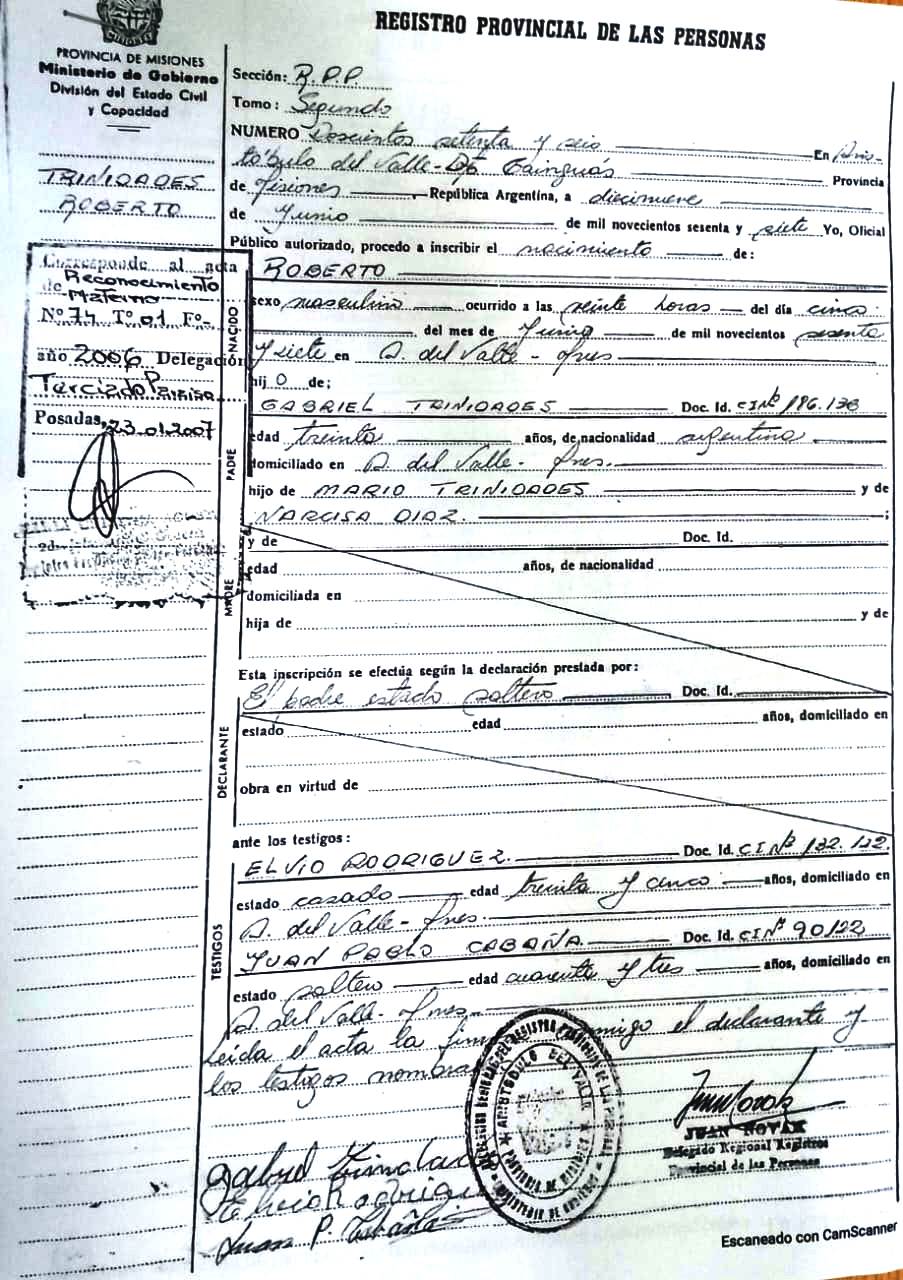 REGISTRO PROVINCIAL DE LAS PERSONAS
MISIONES
PROVINCIA DE MISIONES
Ministerio de Gobierno
División del Estado Civil
y Capacidad
TRINIDADES
ROBERTO
Corresponde al acta
de Reconocimiento
Materno
Nº 74 Tº 01 Fº
año 2006 Delegación
Tarcizio Paraiso
Posadas, 23-01-2007
Sección: R.P.P.
Tomo: Segundo
NUMERO Doscientos setenta y seis En Aris-
tóbulo del Valle - Dpto Cainguás Provincia
de Misiones República Argentina, a diecinueve
de Junio de mil novecientos sesenta y siete Yo, Oficial
Público autorizado, procedo a inscribir el nacimiento de:
NACIDO
ROBERTO
sexo masculino ocurrido a las veinte horas del día cinco
del mes de Junio de mil novecientos sesenta
y siete en A. del Valle - Mnes
hij o de;
PADRE
GABRIEL TRINIDADES Doc. Id. CINº 186.138
edad treinta años, de nacionalidad argentina
domiciliado en A. del Valle - Mnes.
hijo de MARIO TRINIDADES y de
NARCISA DIAZ. ;
MADRE
y de Doc. Id.
edad años, de nacionalidad
domiciliada en
hija de y de
Esta inscripción se efectúa según la declaración prestada por:
DECLARANTE
El padre estado soltero Doc. Id.
estado edad años, domiciliado en
obra en virtud de
ante los testigos:
TESTIGOS
ELVIO RODRIGUEZ. Doc. Id. CINº 132.122.
estado casado edad treinta y cinco años, domiciliado en
A. del Valle - Mnes.
JUAN PABLO CABAÑA. Doc. Id. CINº 90122
estado soltero edad cuarenta y tres años, domiciliado en
A. del Valle - Mnes.
Leída el acta la firm migo el declarante y
los testigos nombra
ARISTOBULO DEL VALLE
PROVINCIA DE MISIONES
MINISTERIO DE GOBIERNO
JUAN NOVAK
Delegado Regional Registros
Provincial de las Personas
Juan P. Cabaña
Escaneado con CamScanner